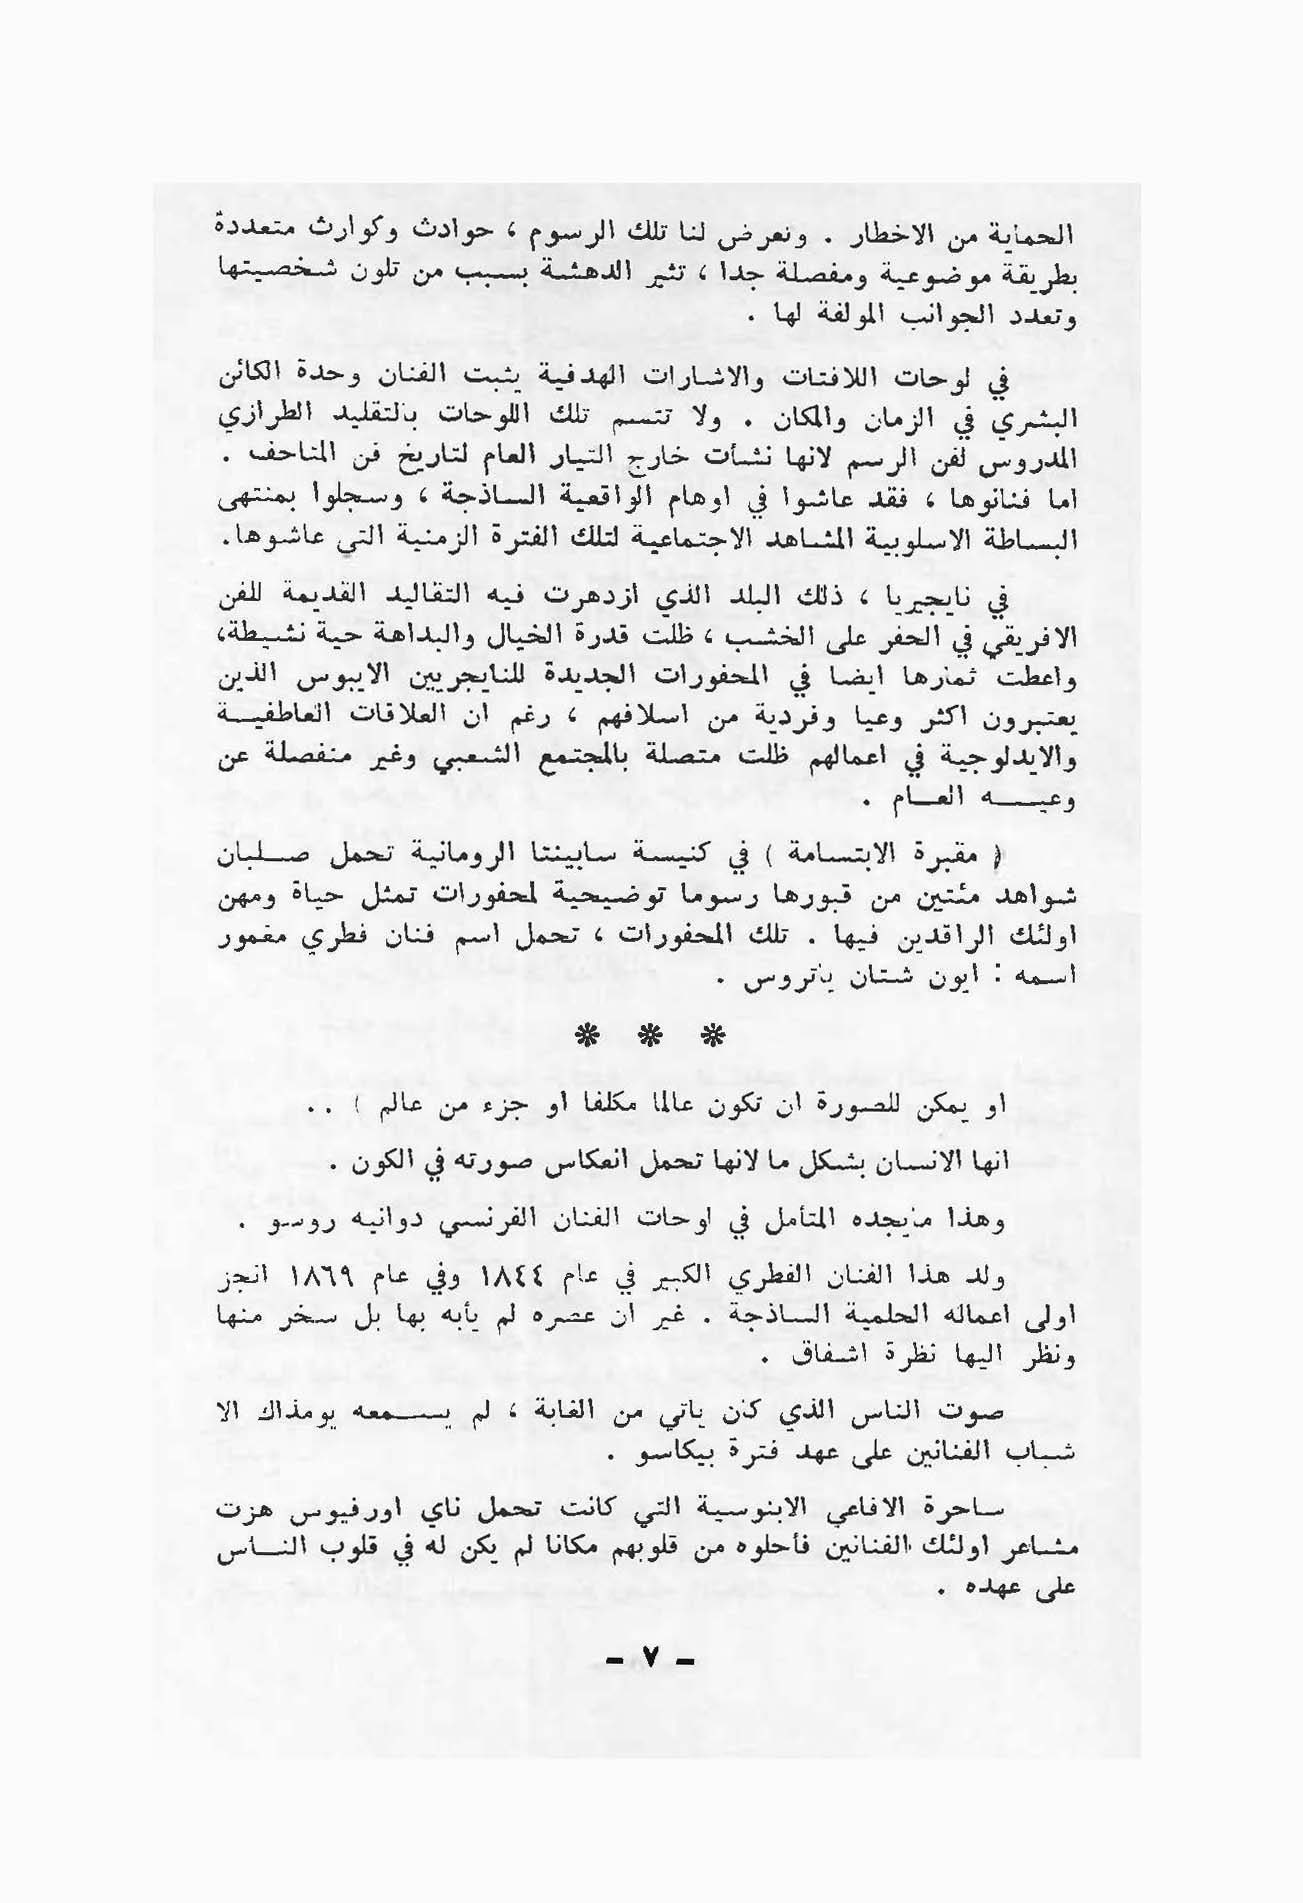 الحماية من الاخطار . وتعرض لنا تلك الرسوم ، حوادث وكوارث متعددة
بطريقة موضوعية ومفصلة جدا ، تثير الدهشة بسبب من تلون شخصيتها
وتعدد الجوانب المولفة لها .
في لوحات اللافتات والاشارات الهدفية يثبت الفنان وحدة الكائن
البشري في الزمان والمكان . ولا تتسم تلك اللوحات بالتقليد الطرازي
المدروس لفن الرسم لانها نشأت خارج التيار العام لتاريخ فن المتاحف .
اما فنانوها ، فقد عاشوا في اوهام الواقعية الساذجة ، وسجلوا بمنتهى
البساطة الاسلوبية المشاهد الاجتماعية لتلك الفترة الزمنية التي عاشوها.
في نايجيريا ، ذلك البلد الذي ازدهرت فيه التقاليد القديمة للفن
الافريقي في الحفر على الخشب ، ظلت قدرة الخيال والبداهة حية نشيطة،
واعطت ثمارها ايضا في المحفورات الجديدة للنايجريين الايبوس الذين
يعتبرون اكثر وعيا وفردية من اسلافهم ، رغم ان العلاقات العاطفيــة
والايدلوجية في اعمالهم ظلت متصلة بالمجتمع الشعبي وغير منفصلة عن
وعيـــه العــام .
( مقبرة الابتسامة ) في كنيسة سابينتا الرومانية تحمل صــلبان
شواهد مئتين من قبورها رسوما توضيحية لمحفورات تمثل حياة ومهن
اولئك الراقدين فيها . تلك المحفورات ، تحمل اسم فنان فطري مغمور
اسمه : ايون شتان باتروس .
* * *
او يمكن للصورة ان تكون عالما مكلفا او جزء من عالم ) . .
انها الانسان بشكل ما لانها تحمل انعكاس صورته في الكون .
وهذا مايجده المتأمل في لوحات الفنان الفرنسي دوانيه روسو .
ولد هذا الفنان الفطري الكبير في عام ١٨٤٤ وفي عام ١٨٦٩ انجز
اولى اعماله الحلمية الساذجة . غير ان عصره لم يأبه بها بل سخر منها
ونظر اليها نظرة اشفاق .
صوت الناس الذي كان ياتي من الغابة ، لم يســـمعه يومذاك الا
شباب الفنانين على عهد فترة بيكاسو .
ساحرة الافاعي الابنوسية التي كانت تحمل ناي اورفيوس هزت
مشاعر اولئك الفنانين فأحلوه من قلوبهم مكانا لم يكن له في قلوب النــاس
على عهده .
- ٧ -